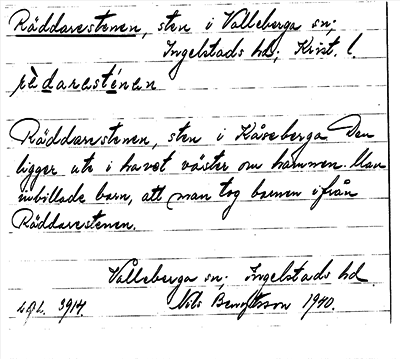 Räddarestenen, sten i Valleberga sn;
Ingelstads hd; Krist. l.
rä̀darestén̄en
Räddarestenen, sten i Kåseberga. Den
ligger ute i havet väster om hamnen. Man
inbillade barn, att man tog barnen ifrån
Räddarestenen.
Valleberga sn; Ingelstads hd
L.A.L. 3914. Nils Bengtsson 1940.